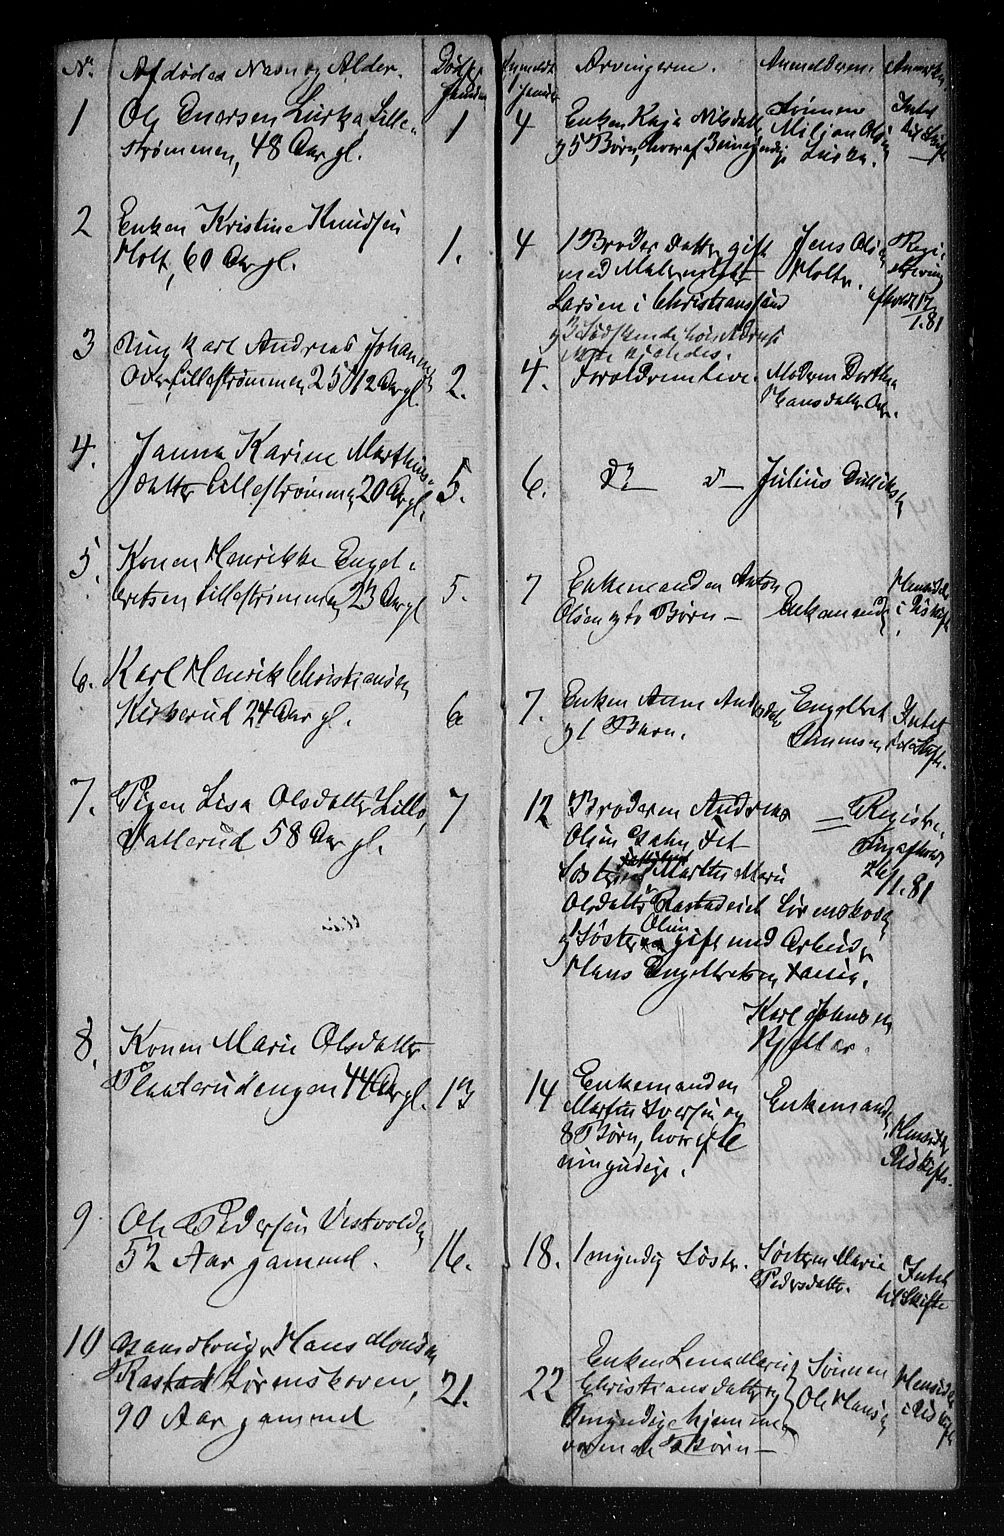 Nr. Afdødes Navn og Alder. Døds Januar Anmeldt Januar Arvingerne. Anmelderen
1 Ole Enersen Lurka, Lille-
strømmen, 48 Aar gl. 1 4 Enken Kaja Nilsdatter
og 5 Børn, hvoraf 3 umyndige
Sønnen
Intet
til Skifte
2 Enken Kristine Knudsen
Holt, 60 Aar gl. 1. 4 1 Broder datter, gift
med
Larsen i Christianssand
og 3
Jens Olsen
Holter.
Regi-
strering
afholdt 17/1.81
3 Ung karl Andreas Johannesen
Lillestrømmen, 25 Aar gl. 2. 4. Forældrene leve.
Moderen Dorthea
Hansdatter
4. Janna Karine Marthins-
datter Lillestrømmen, 20 Aar gl. 5. 6. do do Julius
5. Konen Henrikke Engel-
bretsen Lillestrømmen, 23 Aar gl 5. 7 Enkemanden Anton
Olsen og to Børn — Enkemanden
Hensidder
i Uskifte
6. Karl Henrik Christiansen
Kirkerud 24 Aar gl. 6 7. Enken Anne Andersdatter
og 1 Barn.
Engelbret
Simensen
Intet
til Skifte.
7. Pigen Lisa Olsdatter Lille
Vallerud 58 Aar gl. 7 12 Broderen Andreas
Olsen
Søsteren Marthe Marie
Olsdatter Rastad eie Lørenskoven
og Søsteren Oline gift med Arbeider
Hans Engebretsen
Registre-
ring afholdt
26/1.81
Karl Johansen
8. Konen Marie Olsdatter
Plaaterudengen 44 Aar gl. 13 14 Enkemanden
Martin Iversen og
8 Børn, hvoraf 6
umyndige.
Enkemanden
Hensidder
Uskifte.
9 Ole Pedersen Vestvolden
52 Aar gammel. 16. 18. 1 myndig Søster. Søsteren Marie
Pedersdatter.
Intet
til Skifte
10 Gaardbruger Hans Monsen
Rastad Lørenskoven,
90 Aar gammel 21. 22 Enken Lena Marie
Christiansdatter og
umyndige hjemme-
værende Børn —
Sønnen
Ole Hansen
Hensidder
i Uskifte